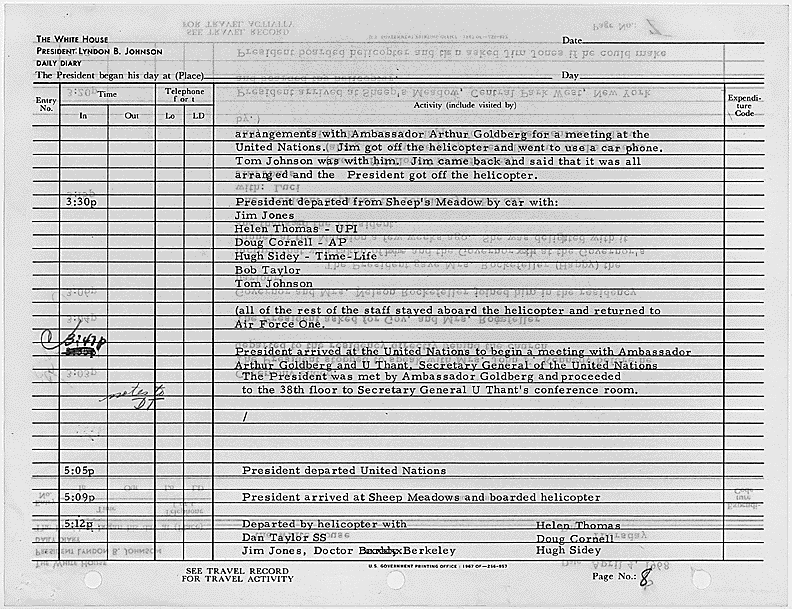 THE WHITE HOUSE
PRESIDENT LYNDON B. JOHNSON
DAILY DIARY
Date
The President began his day at (Place) Day
Entry No. Time In Out Telephone f or t Lo LD Activity (include visited by) Expendi- ture Code
arrangements with Ambassador Arthur Goldberg for a meeting at the
United Nations. Jim got off the helicopter and went to use a car phone.
Tom Johnson was with him. Jim came back and said that it was all
arranged and the President got off the helicopter.
3:30p President departed from Sheep's Meadow by car with:
Jim Jones
Helen Thomas - UPI
Doug Cornell - AP
Hugh Sidey - Time-Life
Bob Taylor
Tom Johnson
(all of the rest of the staff stayed aboard the helicopter and returned to
Air Force One.
3:47p
President arrived at the United Nations to begin a meeting with Ambassador
Arthur Goldberg and U Thant, Secretary General of the United Nations
The President was met by Ambassador Goldberg and proceeded
to the 38th floor to Secretary General U Thant's conference room.
notes to
5:05p President departed United Nations
5:09p President arrived at Sheep Meadows and boarded helicopter
5:12p Departed by helicopter with Helen Thomas
Dan Taylor SS Doug Cornell
Jim Jones, Doctor Berkeley Hugh Sidey
SEE TRAVEL RECORD
FOR TRAVEL ACTIVITY
U.S. GOVERNMENT PRINTING OFFICE : 1967 OF—256-857
Page No.: 8